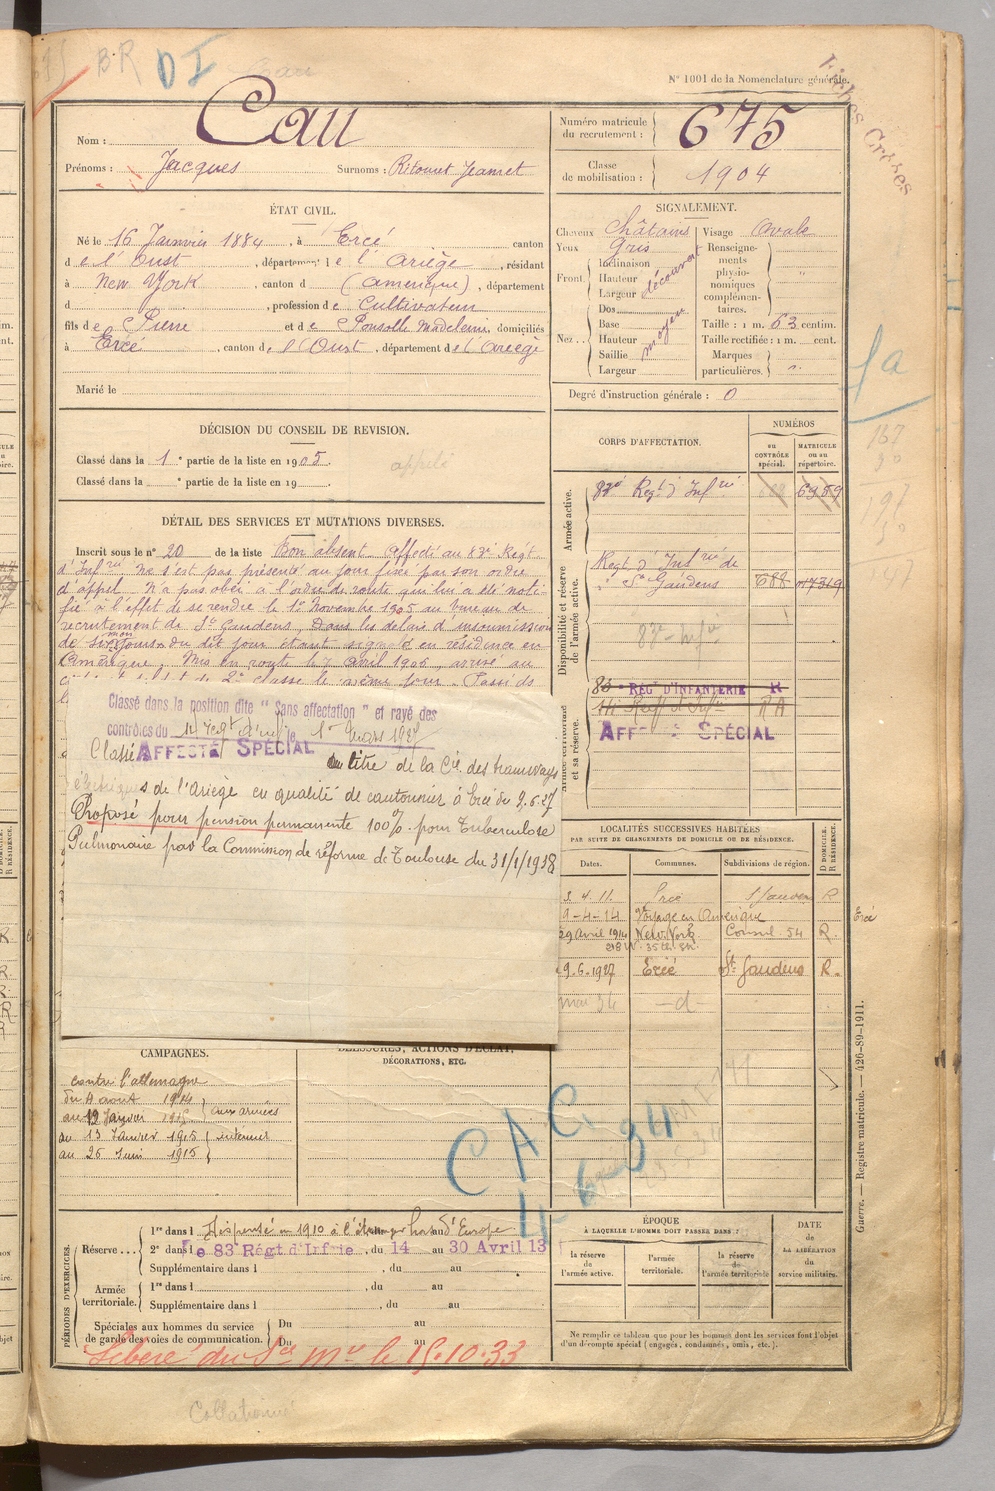 BR DI
N° 1001 de la Nomenclature générale.
Fiches Créées
Nom : Cau
Prénoms : Jacques Surnoms : Ritounet Jeannet
Numéro matricule du recrutement : 675
Classe de mobilisation : 1904
ÉTAT CIVIL.
Né le 16 Janvier 1884, à Ercé canton
d e l'Oust, département d e l'Ariège, résidant
à New York, canton d (Amérique), département
d , profession de Cultivateur
fils de Pierre et de Ponsolle Madeleine, domiciliés
à Ercé, canton de l'Oust, département de l'Ariège
Marié le
SIGNALEMENT.
Cheveux Châtains Visage Ovale
Yeux Gris
Front Inclinaison Hauteur Largeur découvert
Nez Dos Base Hauteur Saillie Largeur moyen
Renseignements physionomiques complémentaires. "
Taille : 1 m. 63 centim.
Taille rectifiée : 1 m. cent.
Marques particulières. "
Degré d'instruction générale : 0
DÉCISION DU CONSEIL DE REVISION.
Classé dans la 1e partie de la liste en 1905. appelé
Classé dans la e partie de la liste en 19 .
CORPS D'AFFECTATION.
NUMÉROS
au CONTRÔLE spécial.
MATRICULE ou au répertoire.
Armée active.
83e Regt d'Infrie 6989
Disponibilité et réserve de l'armée active.
Regt d'Infrie de St Gaudens 688
83e Infie
Armée territoriale et sa réserve.
83 RÉGT D'INFANTERIE R
RA
AFFECTÉ SPÉCIAL
DÉTAIL DES SERVICES ET MUTATIONS DIVERSES.
Inscrit sous le n° 20 de la liste Bon absent Affecté au 83e Regt
d'Infrie Ne s'est pas présenté au jour fixé par son ordre
d'appel. N'a pas obéi à l'ordre de route qui lui a été noti-
fié à l'effet de se rendre le 1er Novembre 1905 au bureau de
recrutement de St Gaudens, Dans les délais d'insoumission
de six mois du dit jour étant signalé en résidence en
Amérique, Mis en route le 7 avril 1906, arrivé au
de 2e classe le même jour. Passé ds
Classé dans la position dite "Sans affectation" et rayé des
contrôles du le 1er mars 1927
Classé AFFECTÉ SPÉCIAL au titre de la Cie des tramways
électriques de l'Ariège en qualité de cantonnier à Ercé du 9.6.27
Proposé pour pension permanente 100% pour Tuberculose
Pulmonaire par la Commission de réforme de Toulouse du 31/1/1938
LOCALITÉS SUCCESSIVES HABITÉES
PAR SUITE DE CHANGEMENTS DE DOMICILE OU DE RÉSIDENCE.
Dates. Communes. Subdivisions de région. D DOMICILE. R RÉSIDENCE.
3.4.11. Ercé St Gaudens R
9-4-14 Voyage en Amérique
29 Avril 1914 New-York Consul. 54 R.
218 W. 35th St.
9.6.1927 Ercé St Gaudens R.
mai 34 —d—
Ercé
CAMPAGNES.
contre l'allemagne
du 4 aout 1914
au 12 Janvier 1915 aux armées
du 13 Janvier 1915 intérieur
au 26 Juin 1915
BLESSURES, ACTIONS D'ÉCLAT,
DÉCORATIONS, ETC.
CAC
4 6 34
PÉRIODES D'EXERCICES.
Réserve...
1re dans l Dispensé en 1910 à l'étranger hors d'Europe
2e dans le 83e Régt d'Infrie, du 14 au 30 Avril 13
Supplémentaire dans l , du au .
Armée territoriale.
1re dans l , du au
Supplémentaire dans l , du au
Spéciales aux hommes du service de garde des voies de communication.
Du au
Du au
Libéré du Sce Mre le 15.10.33
ÉPOQUE
À LAQUELLE L'HOMME DOIT PASSER DANS :
la réserve de l'armée active.
l'armée territoriale.
la réserve de l'armée territoriale
DATE de LA LIBÉRATION du service militaire.
Ne remplir ce tableau que pour les hommes dont les services font l'objet
d'un décompte spécial (engagés, condamnés, omis, etc.).
Guerre. — Registre matricule. — 426-89-1911.
Collationné